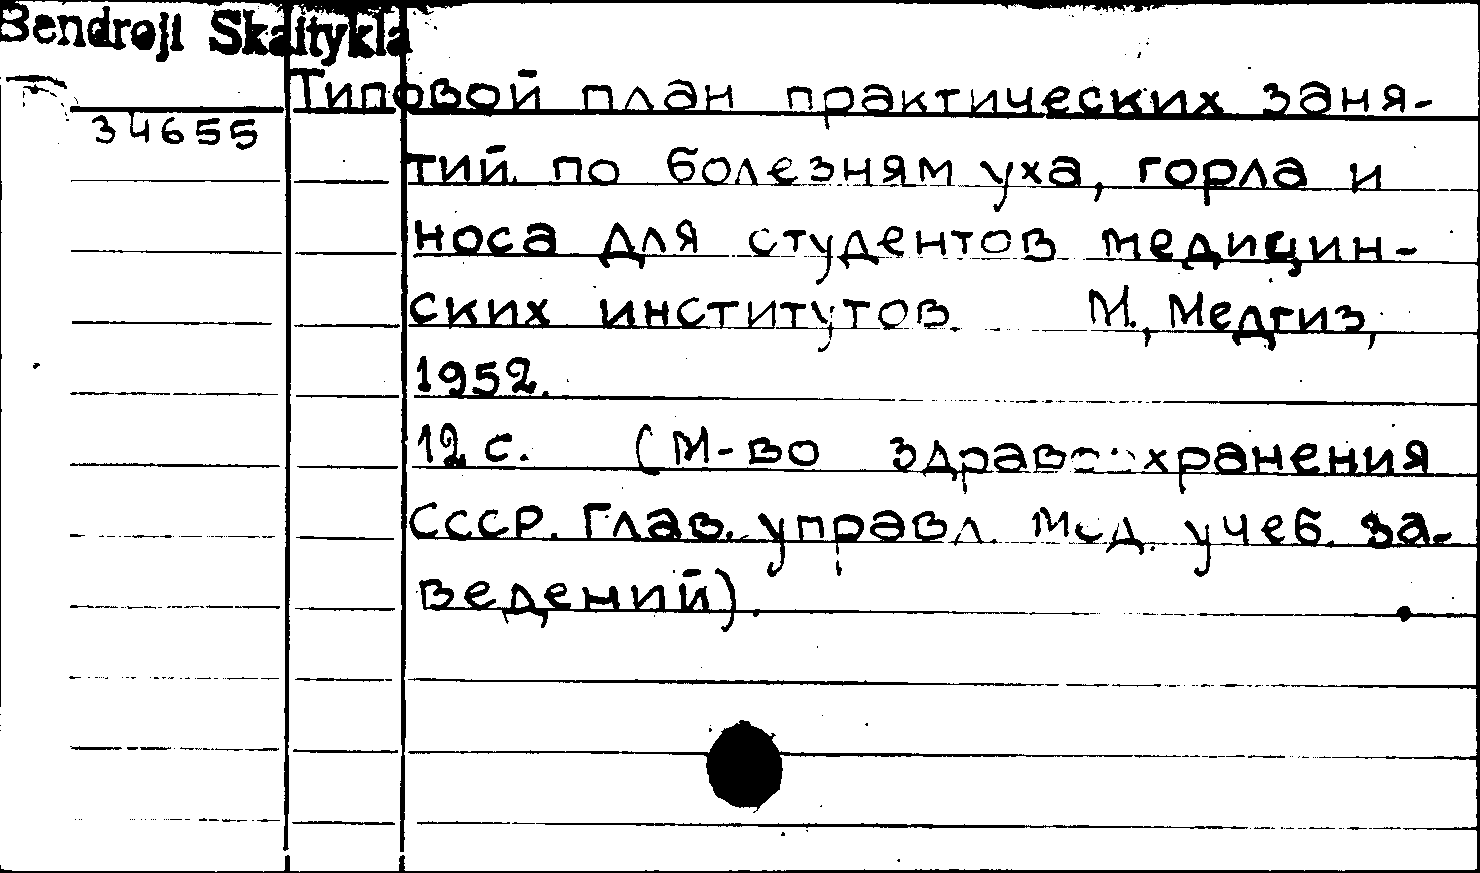 Bendroji Skaitykla
Типовой план практических заня-
34655
тий по болезням уха, горла и
носа для студентов медицин-
ских институтов. М., Медгиз,
1952.
12 с. (М-во здравоохранения
СССР. Глав. управл. мед. учеб. за-
ведений).